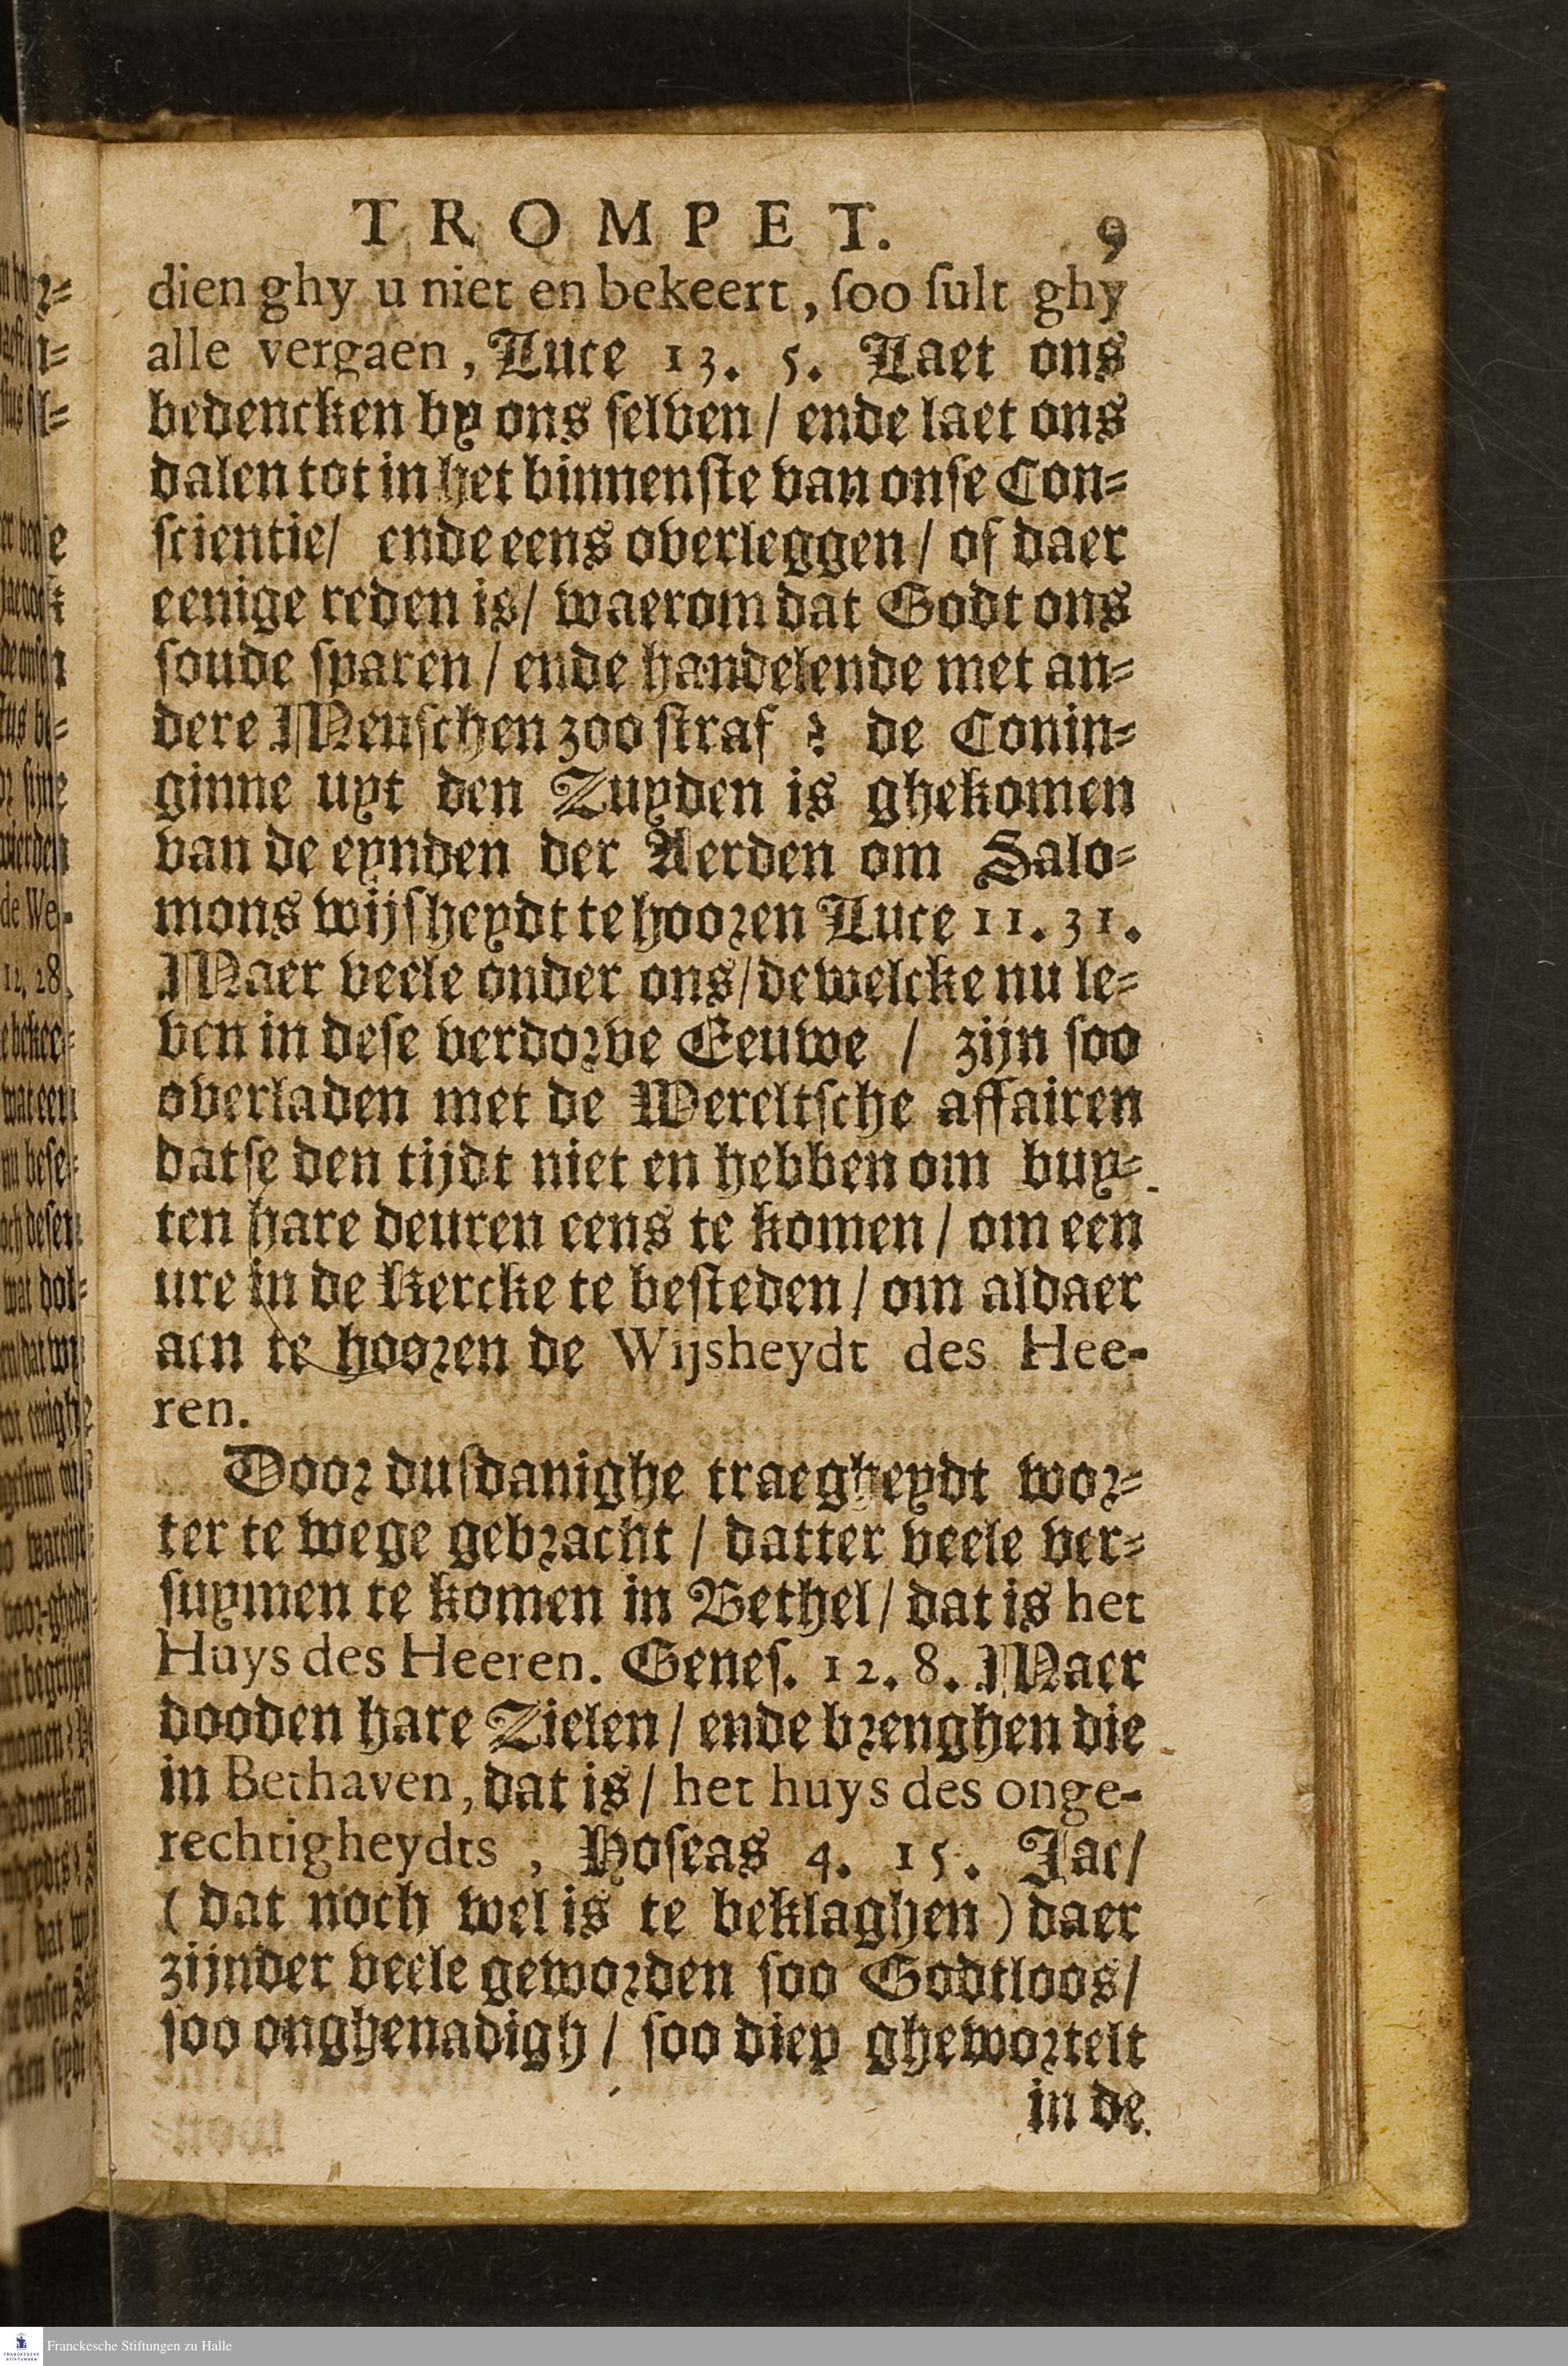 TROMPET. 9
dien ghy u niet en bekeert, ſoo ſult ghy
alle vergaen, Luce 13. 5. Laet ons
bedencken by ons ſelven / ende laet ons
dalen tot in het binnenſte van onſe Con-
ſcientie / ende eens overleggen / of daer
eenige reden is / waerom dat Godt ons
ſoude ſparen / ende handelende met an-
dere Menſchen zoo ſtraf ? de Conin-
ginne uyt den Zuyden is ghekomen
van de eynden der Aerden om Salo-
mons wijſheydt te hooren Luce 11. 31.
Maer veele onder ons / dewelcke nu le-
ven in deſe verdorve Eeuwe / zijn ſoo
overladen met de Wereltſche affairen
datſe den tijdt niet en hebben om buy-
ten hare deuren eens te komen / om een
ure in de Kercke te beſteden / om aldaer
aen te hooren de Wijsheydt des Hee-
ren.
Door duſdanighe traegheydt wor-
ter te wege gebracht / datter veele ver-
ſuymen te komen in Bethel / dat is het
Huys des Heeren. Geneſ. 12. 8. Maer
dooden hare Zielen / ende brenghen die
in Bethaven, dat is / het huys des onge-
rechtigheydts, Hoſeas 4. 15. Jae /
(dat noch wel is te beklaghen) daer
zijnder veele geworden ſoo Godtloos /
ſoo onghenadigh / ſoo diep ghewortelt
in de
Franckesche Stiftungen zu Halle